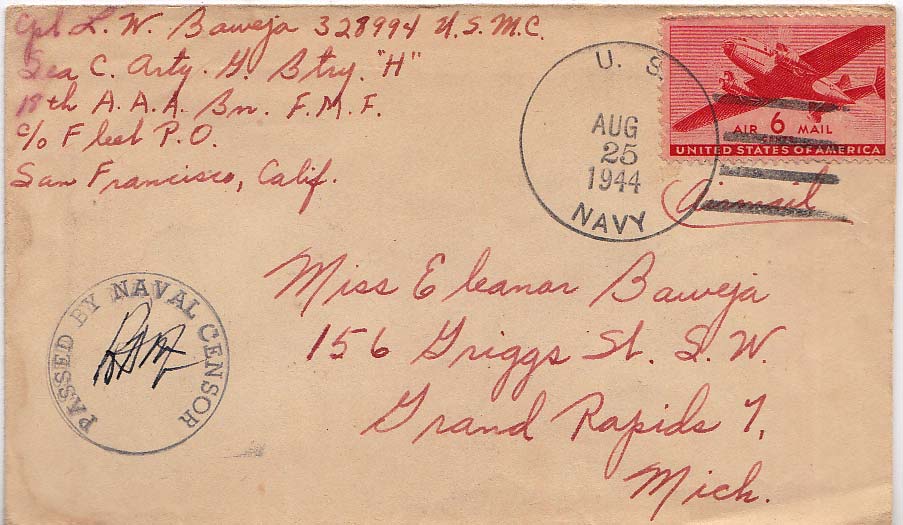 Cpl L. W. Baweja 328994 U.S.M.C.
Sea C. Arty. G. Btry. "H"
18th A.A.A. Bn. F.M.F.
c/o Fleet P.O.
San Francisco, Calif.
U. S.
AUG
25
1944
NAVY
AIR 6 MAIL
UNITED STATES OF AMERICA
Airmail
PASSED BY NAVAL CENSOR
Miss Eleanor Baweja
156 Griggs St. S.W.
Grand Rapids 7,
Mich.